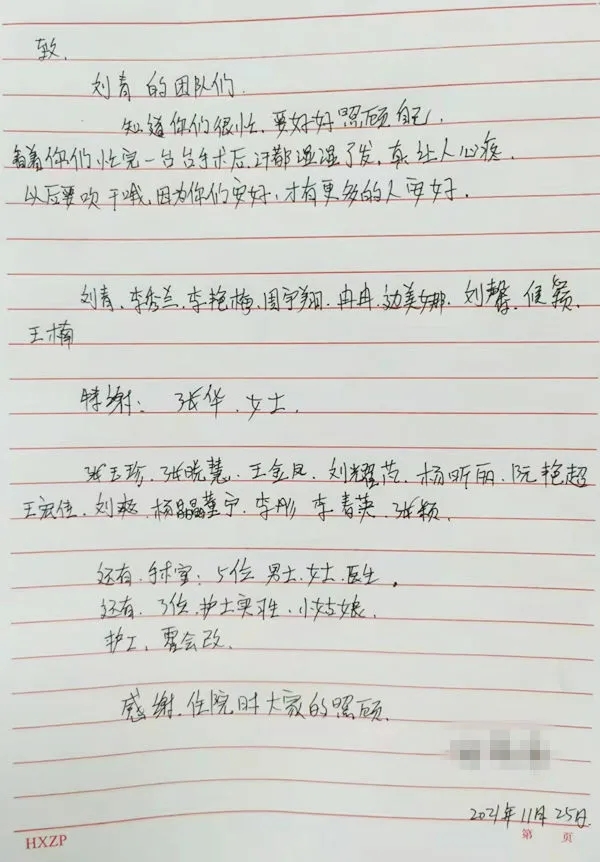 致.
刘青 的团队们.
知道你们很忙, 要好好照顾自己,
看着你们忙完一台台手术后, 汗都湿湿了发, 真让人心疼,
以后要吹干哦, 因为你们更好, 才有更多的人更好.
刘青、李秀兰、李艳梅、周宇翔、冉冉、边美娜、刘馨、候颖、
王楠
特谢: 张华、女士.
张玉珍、张晓慧、王金凤、刘耀范、杨昕丽、阮艳超
王宏佳、刘爽、杨晶晶 董宁、李彤、李春英、张颖.
还有、手术室: 5位 男士、女士、医生.
还有、3位、护士实习生、小姑娘.
护工、
感谢、住院时大家的照顾.
2021年11月25日
HXZP
第 页